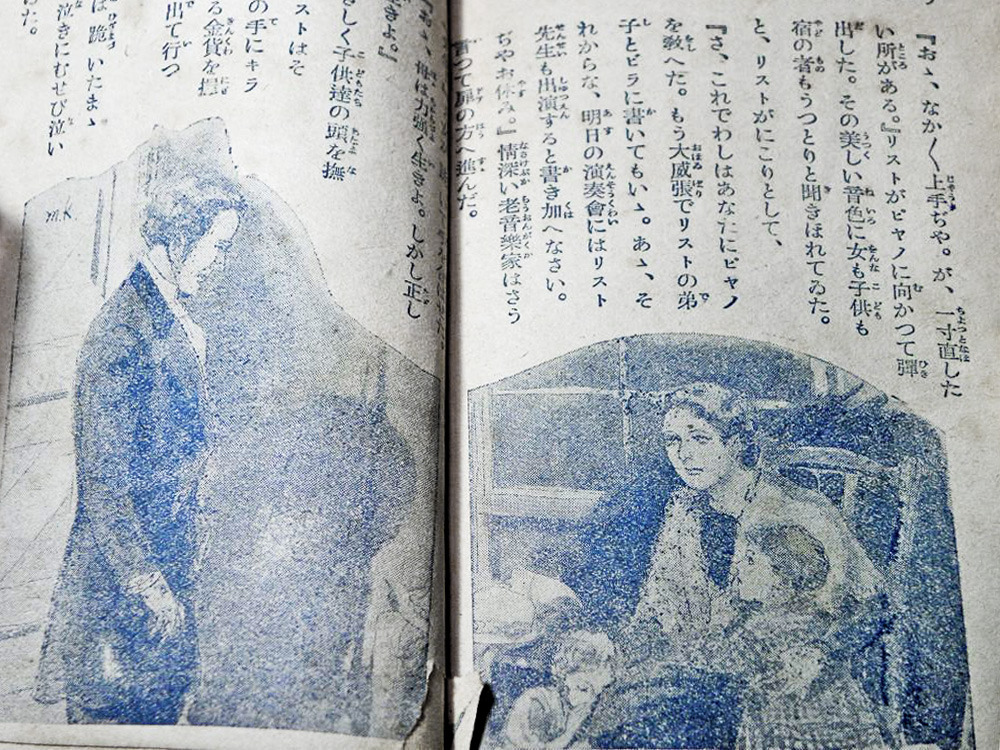 『おゝ、なか〱上手ぢや。が、一寸直した
い所がある。』リストがピヤノに向かつて彈
出した。その美しい音色に女も子供も
宿の者もうつとりと聞きほれてゐた。
と、リストがにこりとして、
『さ、これでわしはあなたにピヤノ
を敎へた。もう大威張でリストの弟
子とビラに書いてもいゝ。あゝ、そ
れからな、明日の演奏會にはリスト
先生も出演すると書き加へなさい。
ぢやお休み。』情深い老音樂家はさう
言つて扉の方へ進んだ。
『おゝ、母は力強く生きよ。しかし正し
生きよ。』
さしく子供達の頭を撫
ストはそ
の手にキラ
る金貨を握
出て行つ
は跪いたまゝ
泣きにむせび泣い
た。
m.K.